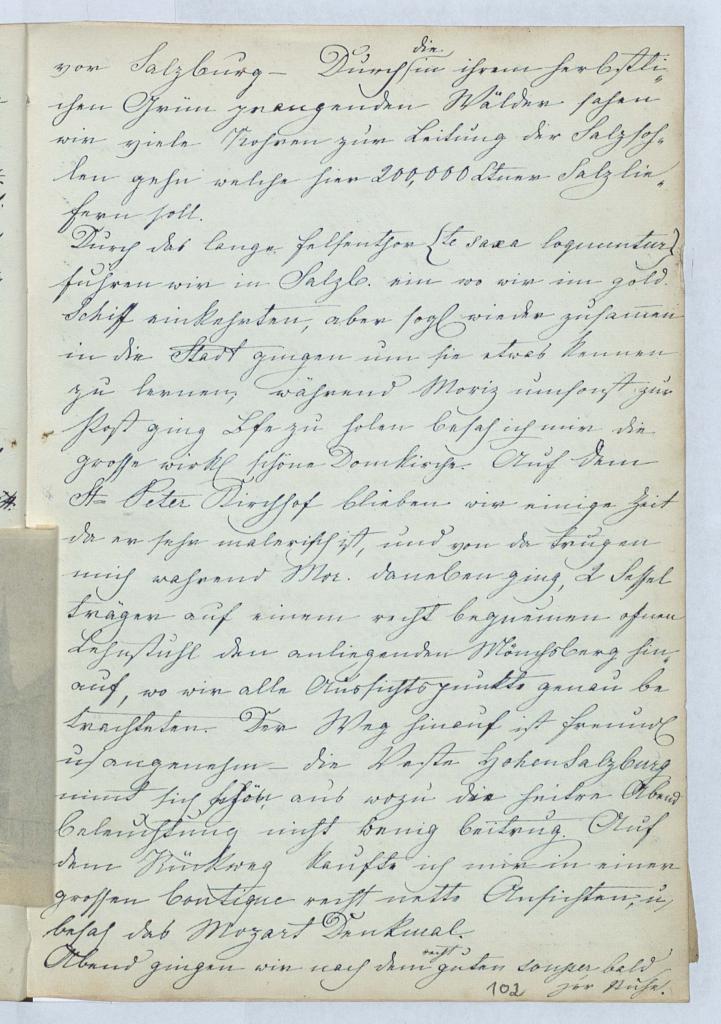 vor Salzburg – Durch die in ihrem herbstli-
chen Grün prangenden Wälder sahen
wir viele Rohren zur Leitung der Salzsoh-
len gehn welche hier 200,000 Ctner Salz lie-
fern soll.
Durch das lange Felsenthor (te saxa loquuntur)
fuhren wir in Salzb. ein wo wir im gold.
Schiff einkehrten, aber sogl wieder zusammen
in die Stadt gingen um sie etwas kennen
zu lernen, während Moriz umsonst zur
Post ging Bfe zu holen besah ich mir die
grosse wirkl schöne Domkirche. Auf dem
St Peter Kirchhof blieben wir einige Zeit
da er sehr malerisch ist, und von da trugen
mich wahrend Mor. daneben ging, 2 Sessel
träger auf einem recht bequemen ofnen
Lehnstuhl den anliegenden Mönchsberg hin-
auf, wo wir alle Aussichtspunkte genau be
trachteten. Der Weg hinauf ist freundl
u angenehm – die Veste Hohensalzburg
nimt sich schön aus wozu die heitre Abend
beleuchtung nicht wenig beitrug. Auf
dem Rückweg kaufte ich mir in einer
grossen boutique recht nette Ansichten, u,
besah das Mozart Denkmal.
Abend gingen wir nach dem recht guten souper bald
zur Ruhe.
102